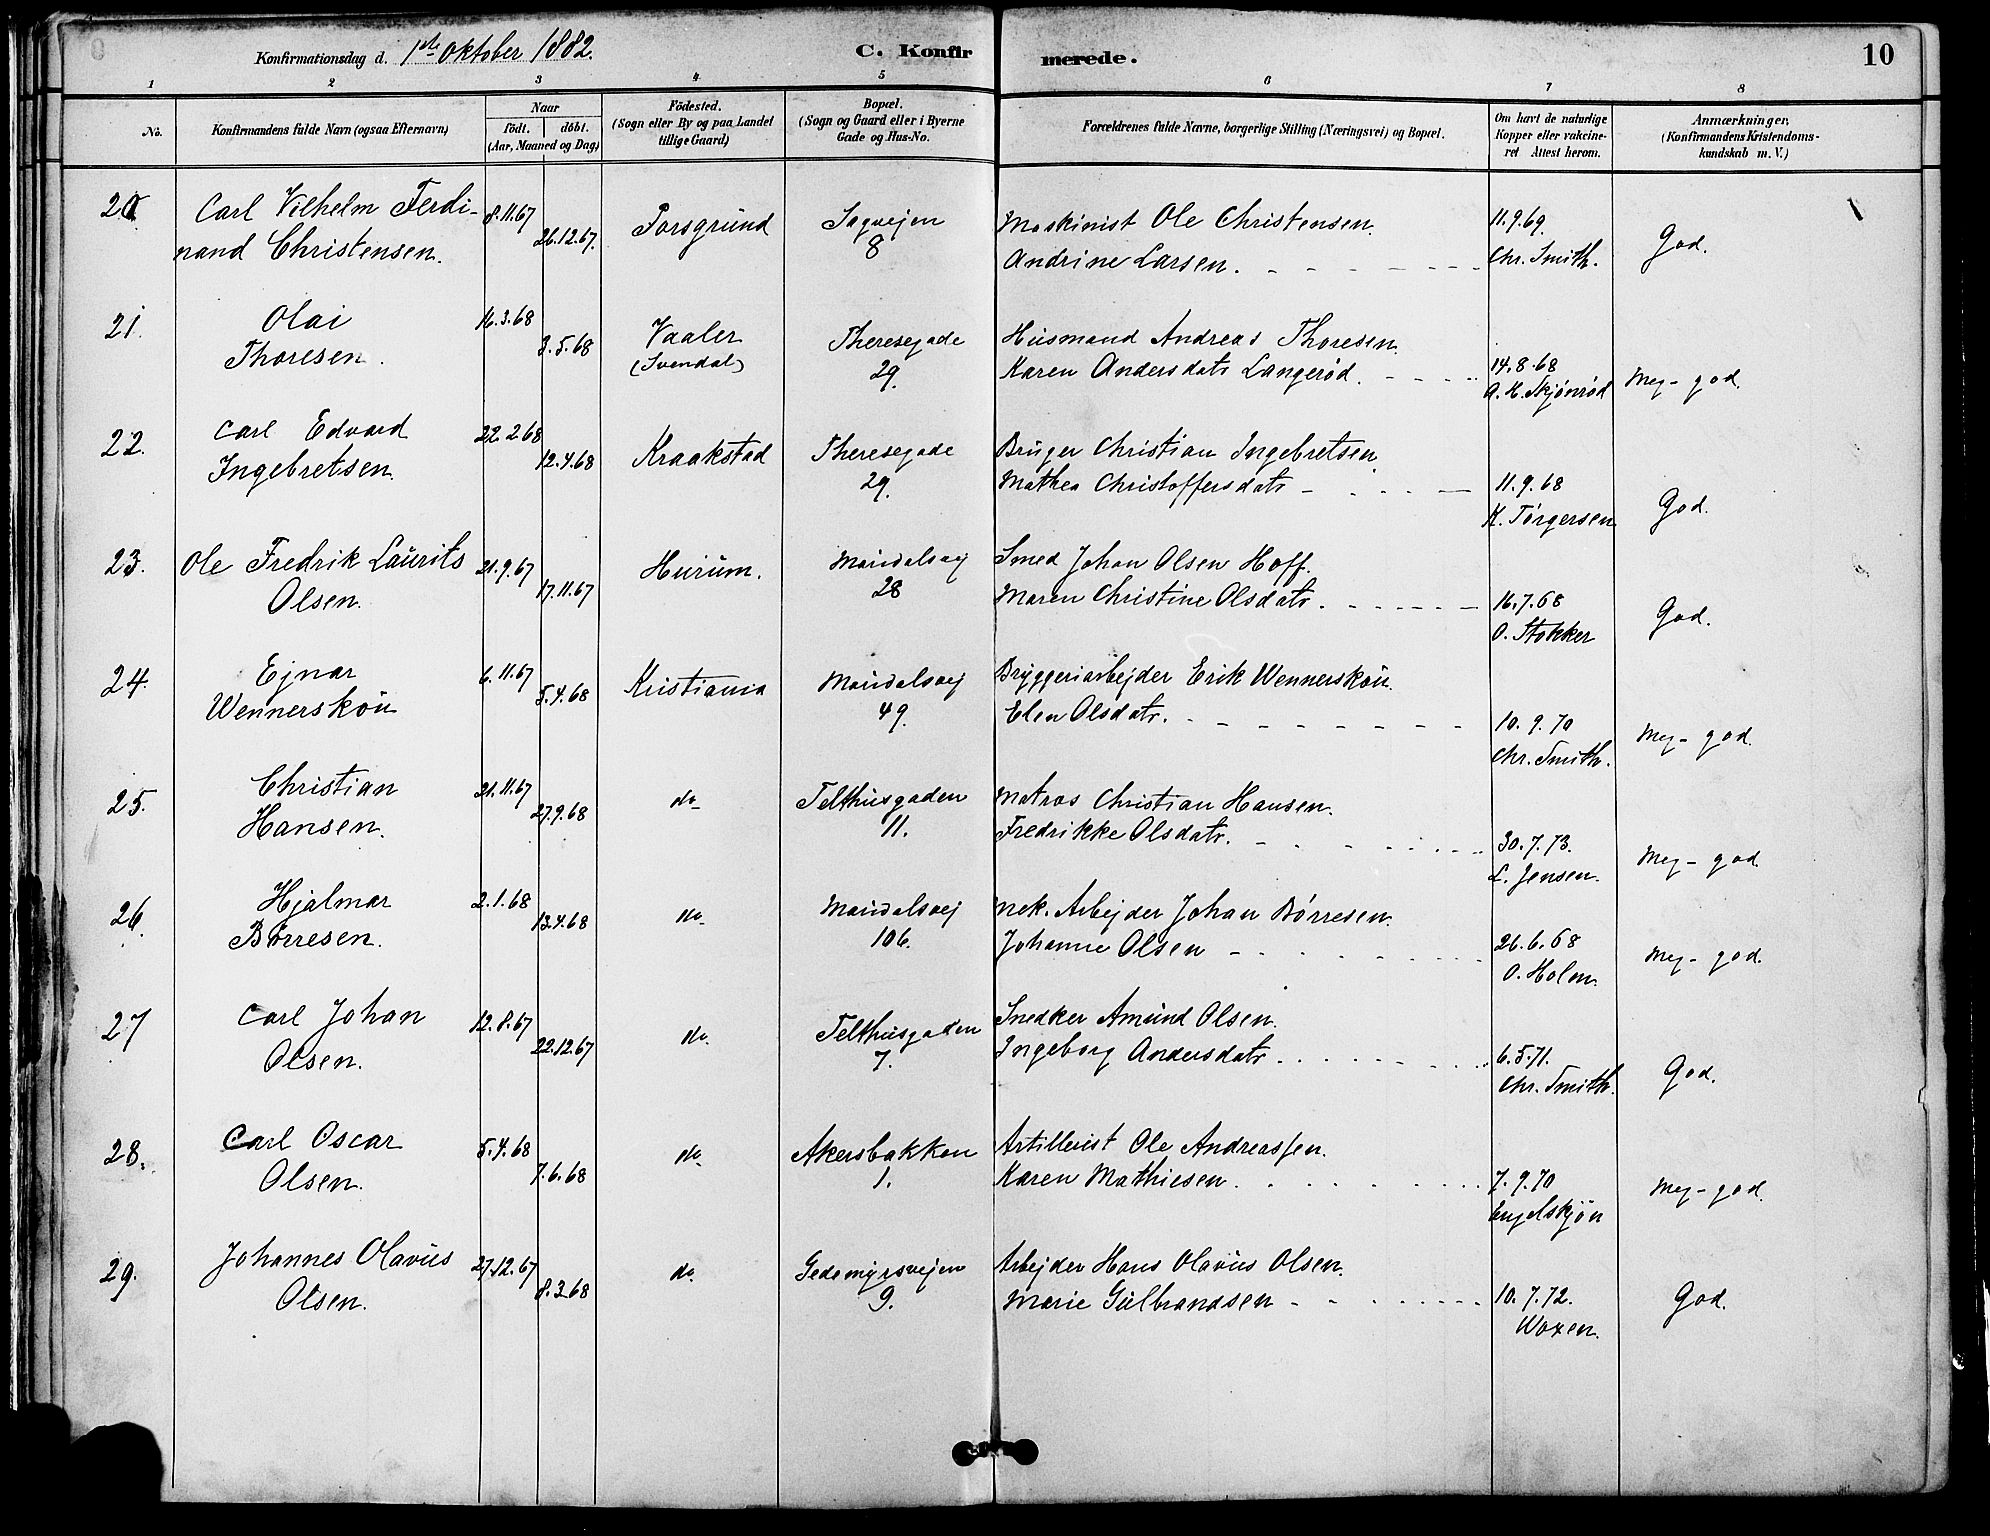 Konfirmationsdag d. 1ste Oktober 1882. C. Konfirmerede. 10
1 2 3 4 5 6 7 8
No. Konfirmandens fulde Navn (ogsaa Efternavn) Naar födt. döbt. (Aar, Maaned og Dag) Födested. (Sogn eller By og paa Landet tillige Gaard) Bopæl. (Sogn og Gaard eller i Byerne Gade og Hus-No. Forældrenes fulde Navne, borgerlige Stilling (Næringsvei) og Bopæl. Om havt de naturlige Kopper eller vakcineret Attest herom. Anmærkninger, (Konfirmandens Kristendomskundskab m. V.)
20 Carl Vilhelm Ferdi- 8.11.67 26.12.67. Porsgrund Sagvejen Maskinist Ole Christensen. 11.9.69. God.
nand Christensen. 8 Andrine Larsen. Chr. Smith.
21. Olai 16.3.68 3.5.68 Vaaler Theresegade Husmand Andreas Thoresen. 14.8.68 Meg- god.
Thoresen. (Svendal) 29. Karen Andersdatr Langerød. A. H. Skjønrød
22. Carl Edvard 22.2.68 12.4.68 Kraakstad Theresegade Bruger Christian Ingebretsen 11.9.68 God.
Ingebretsen. 29. Mathea Christoffersdatr K. Torgersen
23. Ole Fredrik Laurits 21.9.67 17.11.67 Hurum. Maridalsvej Smed Johan Olsen Hoff. 16.7.68 God.
Olsen. 28 Maren Christine Olsdatr. O. Stokker
24. Ejnar 6.11.67 5.4.68 Kristiania Maridalsvej Bryggeriarbejder Erik Wennerskou. 10.9.70 Meg- god.
Wennerskou 49. Elen Olsdatr. Chr. Smith.
25. Christian 21.11.67 27.9.68 do Telthusgaden Matros Christian Hansen. 30.7.73. Meg- god.
Hansen. 11. Fredrikke Olsdatr. L. Jensen.
26. Hjalmar 2.1.68 13.4.68 do Maridalsvej Mek. Arbejder Johan Børresen. 26.6.68 Meg- god.
Børresen. 106. Johanne Olsen O. Holm.
27 Carl Johan 12.8.67 22.12.67 do. Telthusgaden Snedker Amund Olsen. 6.5.71. God.
Olsen. 7. Ingeborg Andersdatr Chr. Smith.
28. Carl Oscar 5.4.68 7.6.68 do Akersbakken Artillerist Ole Andreassen. 7.9.70 Meg- god.
Olsen. 1. Karen Mathiesen. Engelskjøn
29. Johannes Olavus 27.12.67 8.3.68 do. Gedemyrsvejen Arbejder Hans Olavus Olsen. 10.7.72. God.
Olsen. 9. Marie Gulbrandsen Woxen.